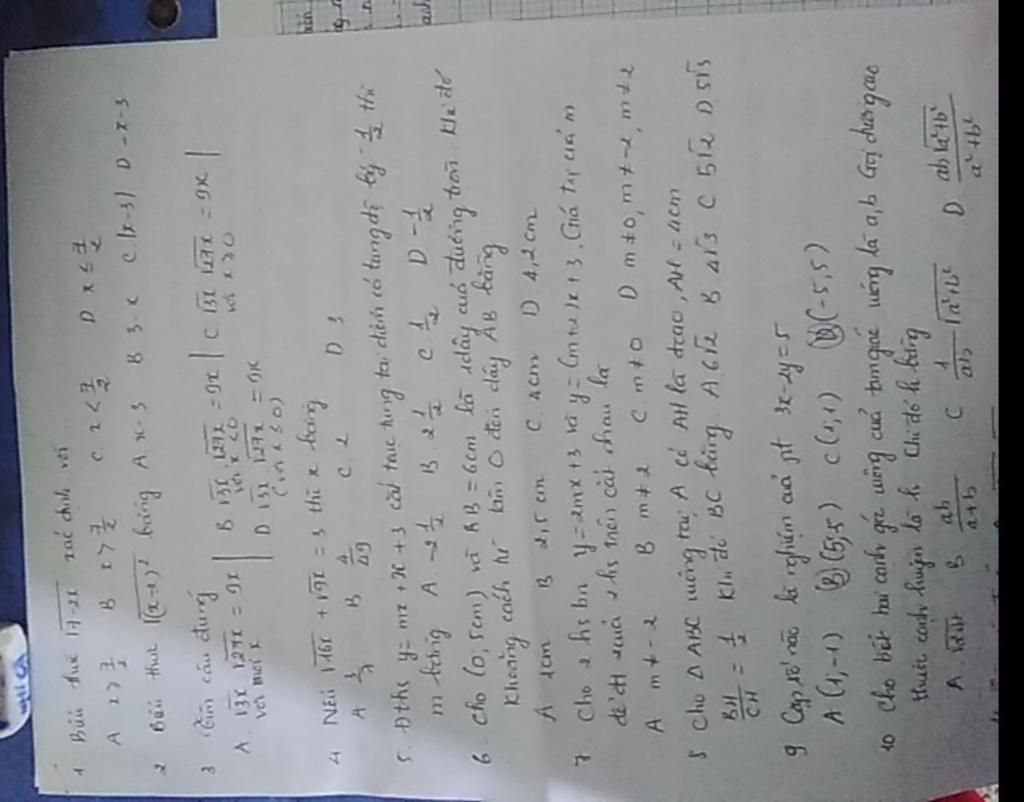 1 Biểu thức √7-2x xác định với
A x ≥ 7/2 B x > 7/2 C. x < 7/2 D x ≤ 7/2
2 Biểu thức √(x-3)² bằng A x-3 B 3-x C |x-3| D -x-3
3 Tìm câu đúng
A. √3x √27x = 9x với mọi x | B √3x √27x = 9x với x<0 | C √3x √27x = 9x với x ≥ 0 |
D √3x √27x = 9x (với x ≤ 0)
4 Nếu √16x + √9x = 3 thì x bằng
A 3/7 B. 9/49 C 2 D 3
5. Đths y=mx+x+3 cắt trục tung tại điểm có tung độ bằng -1/2 thì
m bằng A. -2 1/2 B. 2 1/2 C 1/2 D -1/2
6. Cho (0; 5cm) và AB = 6cm là 1 dây của đường tròn. Khi đó
Khoảng cách từ tâm O đến dây AB bằng
A 1cm B 2,5 cm C. 4cm D 4,2cm
7 Cho 2 hs bn y=2mx+3 và y=(m+2)x+3. Giá trị của m
để đt của 2 hs trên cắt nhau là
A m≠-2 B m≠2 C. m≠0 D m≠0, m≠-2, m≠2
8 Cho △ABC vuông tại A có AH là đcao, AH = 4cm
BH/CH = 1/2 Khi đó BC bằng. A 6√2 B. 4√3 C 5√2 D. 5√3
9 Cặp số nào là nghiệm của pt 3x-2y=5
A (1,-1) B (5;5) C (1,1) D (-5,5)
10 Cho biết hai cạnh góc vuông của tam giác vuông là a,b Gọi đường cao
thuộc cạnh huyền là h Khi đó h bằng
A. B ab/a+b C 1/ab √a²+b² D ab√a²+b²/a²+b²